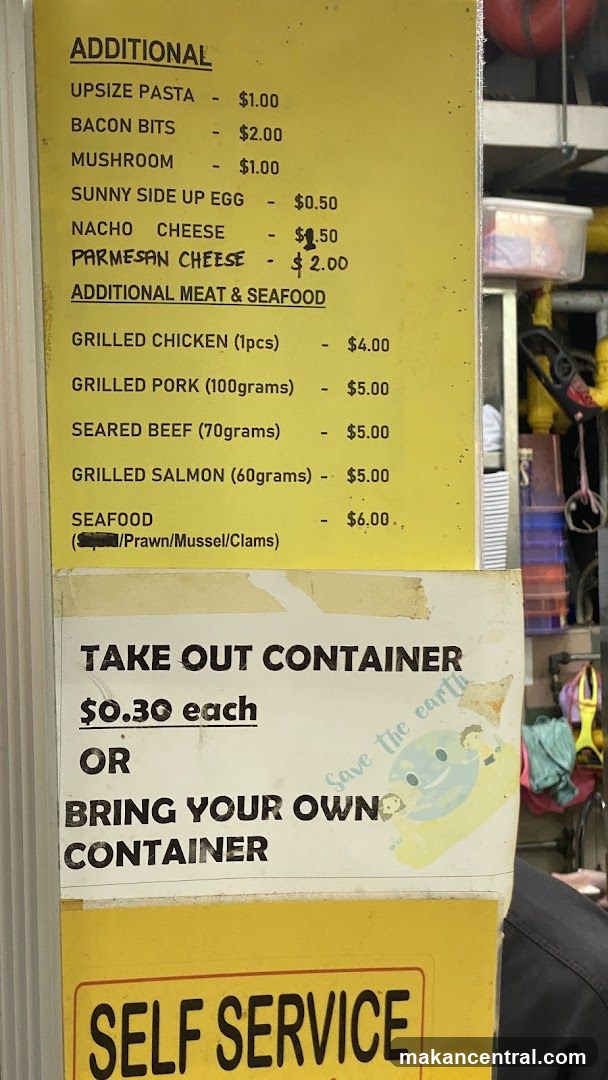 ADDITIONAL
UPSIZE PASTA - $1.00
BACON BITS - $2.00
MUSHROOM - $1.00
SUNNY SIDE UP EGG - $0.50
NACHO CHEESE - $1.50
PARMESAN CHEESE - $2.00
ADDITIONAL MEAT & SEAFOOD
GRILLED CHICKEN (1pcs) - $4.00
GRILLED PORK (100grams) - $5.00
SEARED BEEF (70grams) - $5.00
GRILLED SALMON (60grams) - $5.00
SEAFOOD - $6.00
(/Prawn/Mussel/Clams)
TAKE OUT CONTAINER
$0.30 each
save the earth
OR
BRING YOUR OWN
CONTAINER
SELF SERVICE
makancentral.com